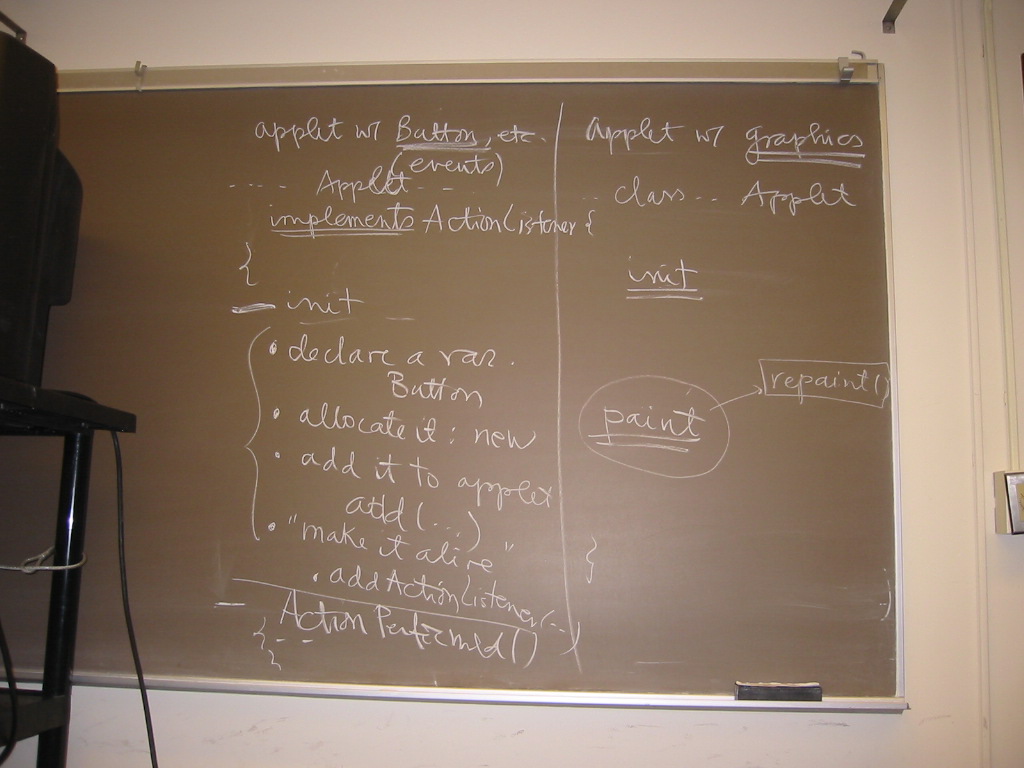 applet w/ Button, etc.
(events)
..... Applet ...
implements ActionListener {
{
init
• declare a var.
Button
• allocate it : new
• add it to applet
add (...)
• "make it alive"
. addActionListener(...)
Action Performed()
{ - -
}
Applet w/ graphics
.. class ... Applet
init
paint
repaint()
}